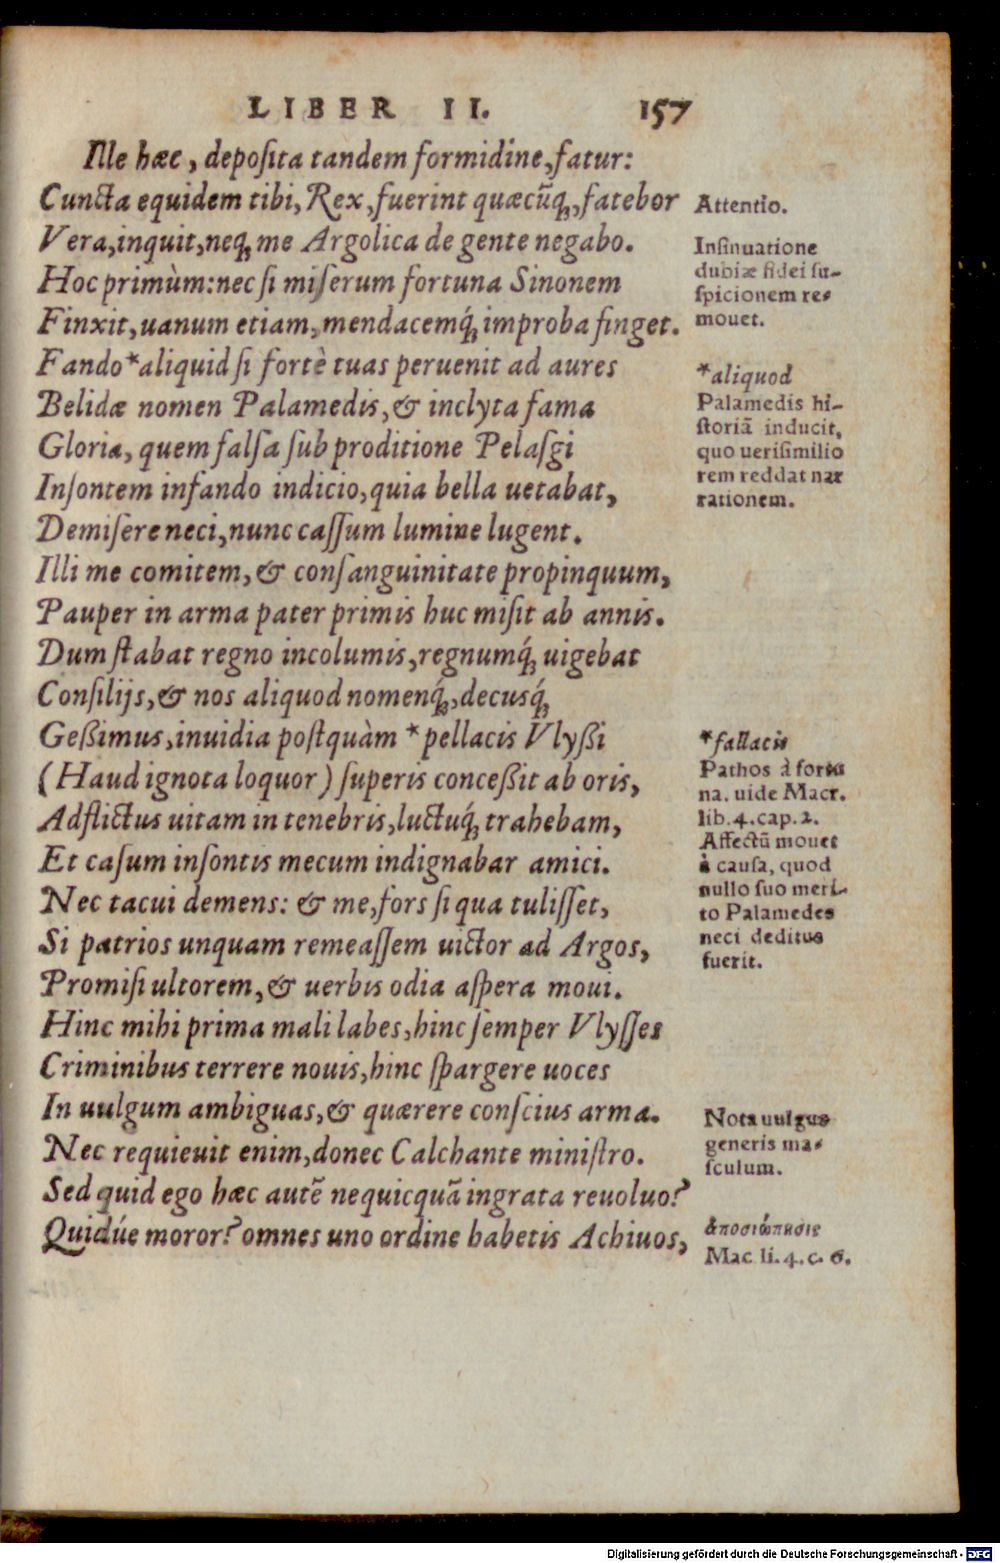 LIBER II. 157
Ille hæc, deposita tandem formidine, fatur:
Cuncta equidem tibi, Rex, fuerint quæcũq;, fatebor
Vera, inquit, neq; me Argolica de gente negabo.
Hoc primùm: nec si miserum fortuna Sinonem
Finxit, uanum etiam, mendacemq́; improba finget.
Fando *aliquid si fortè tuas peruenit ad aures
Belidæ nomen Palamedis, & inclyta fama
Gloria, quem falsa sub proditione Pelasgi
Insontem infando indicio, quia bella uetabat,
Demisere neci, nunc cassum lumine lugent.
Illi me comitem, & consanguinitate propinquum,
Pauper in arma pater primis huc misit ab annis.
Dum stabat regno incolumis, regnumq́; uigebat
Consilijs, & nos aliquod nomenq́;, decusq́;
Geßimus, inuidia postquàm *pellacis Vlyßi
(Haud ignota loquor) superis conceßit ab oris,
Adflictus uitam in tenebris, luctuq́; trahebam,
Et casum insontis mecum indignabar amici.
Nec tacui demens: & me, fors si qua tulisset,
Si patrios unquam remeassem uictor ad Argos,
Promisi ultorem, & uerbis odia aspera moui.
Hinc mihi prima mali labes, hinc semper Vlysses
Criminibus terrere nouis, hinc spargere uoces
In uulgum ambiguas, & quærere conscius arma.
Nec requieuit enim, donec Calchante ministro.
Sed quid ego hæc autẽ nequicquã ingrata reuoluo?
Quidúe moror? omnes uno ordine habetis Achiuos,
Attentio.
Insinuatione
dubiæ fidei su-
spicionem re-
mouet.
*aliquod
Palamedis hi-
storiã inducit,
quo uerisimilio
rem reddat nar
rationem.
*fallacis
Pathos à fortu
na. uide Macr.
lib. 4. cap. 2.
Affectũ mouet
à causa, quod
nullo suo meri-
to Palamedes
neci deditus
fuerit.
Nota uulgus
generis ma-
sculum.
ἀποσιώπησις
Mac li. 4. c. 6.
Digitalisierung gefördert durch die Deutsche Forschungsgemeinschaft - DFG